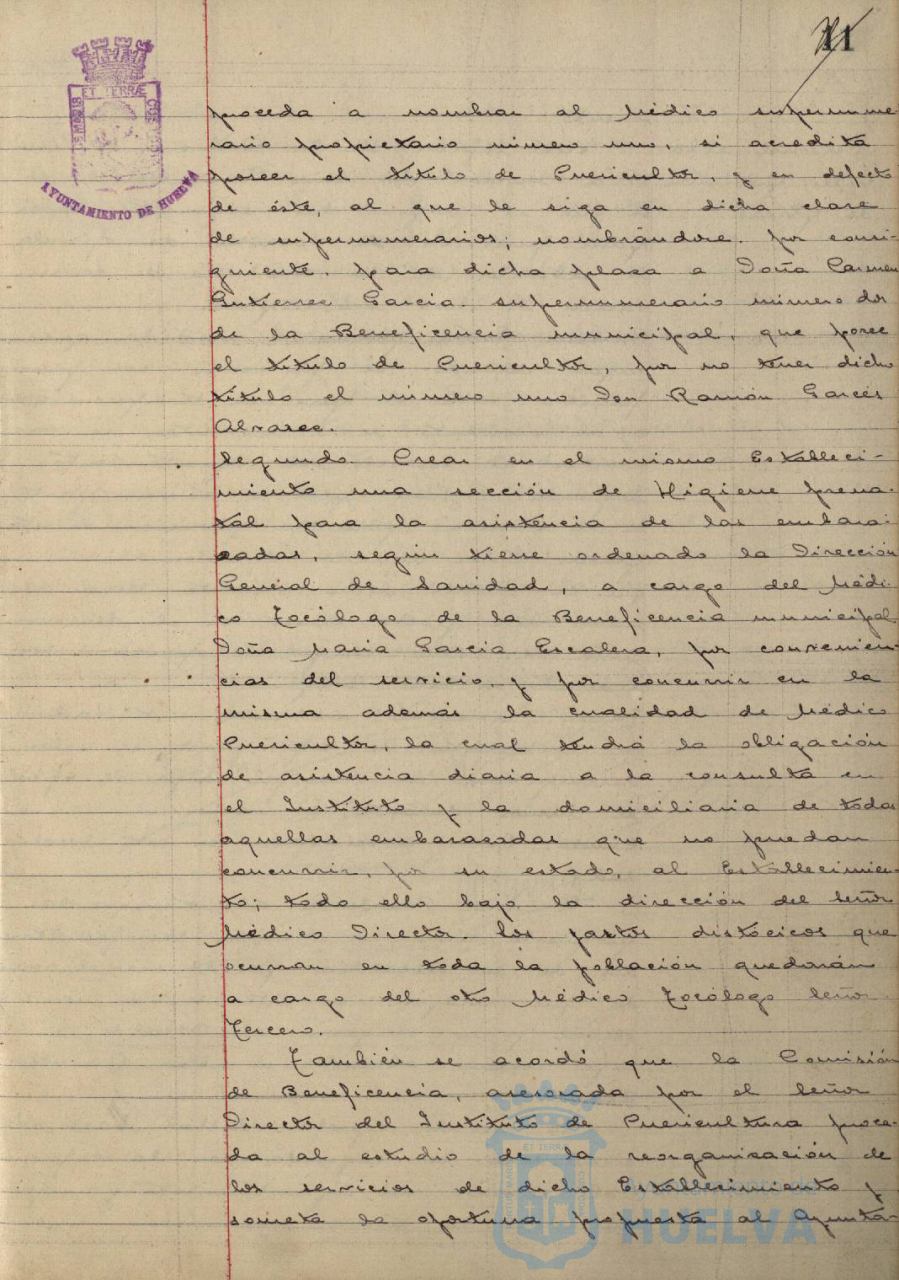 11
ET TERRÆ
AYUNTAMIENTO DE HUELVA
proceda a nombrar al Médico supernume
rario propietario número uno, si acredita
poseer el título de Puericultor, y en defecto
de éste, al que le siga en dicha clase
de supernumerarios; nombrándose. por consi-
guiente. para dicha plaza a Doña Carmen
Gutierrez Garcia. supernumerario número dos
de la Beneficencia municipal, que posee
el título de Puericultor, por no tener dicho
título el número uno Don Ramón Garcés
Alvarez.
Segundo. Crear en el mismo Estableci-
miento una sección de Higiene prena-
tal para la asistencia de las embara-
zadas, según tiene ordenado la Dirección
General de Sanidad, a cargo del Médi-
co Tocólogo de la Beneficencia municipal
Doña Maria Garcia Escalera, por convenien-
cias del servicio, y por concurrir en la
misma además la cualidad de Médico
Puericultor, la cual tendrá la obligación
de asistencia diaria a la consulta en
el Instituto y la domiciliaria de todas
aquellas embarazadas que no puedan
concurrir, por su estado, al Establecimien-
to; todo ello bajo la dirección del Señor
Médico Director. Los partos distócicos que
ocurran en toda la población quedarán
a cargo del otro Médico Tocólogo Señor
Tercero.
También se acordó que la Comisión
de Beneficencia, asesorada por el Señor
Director del Instituto de Puericultura proce-
da al estudio de la reorganización de
los servicios de dicho Establecimiento y
someta la oportuna propuesta al Ayunta-
HUELVA